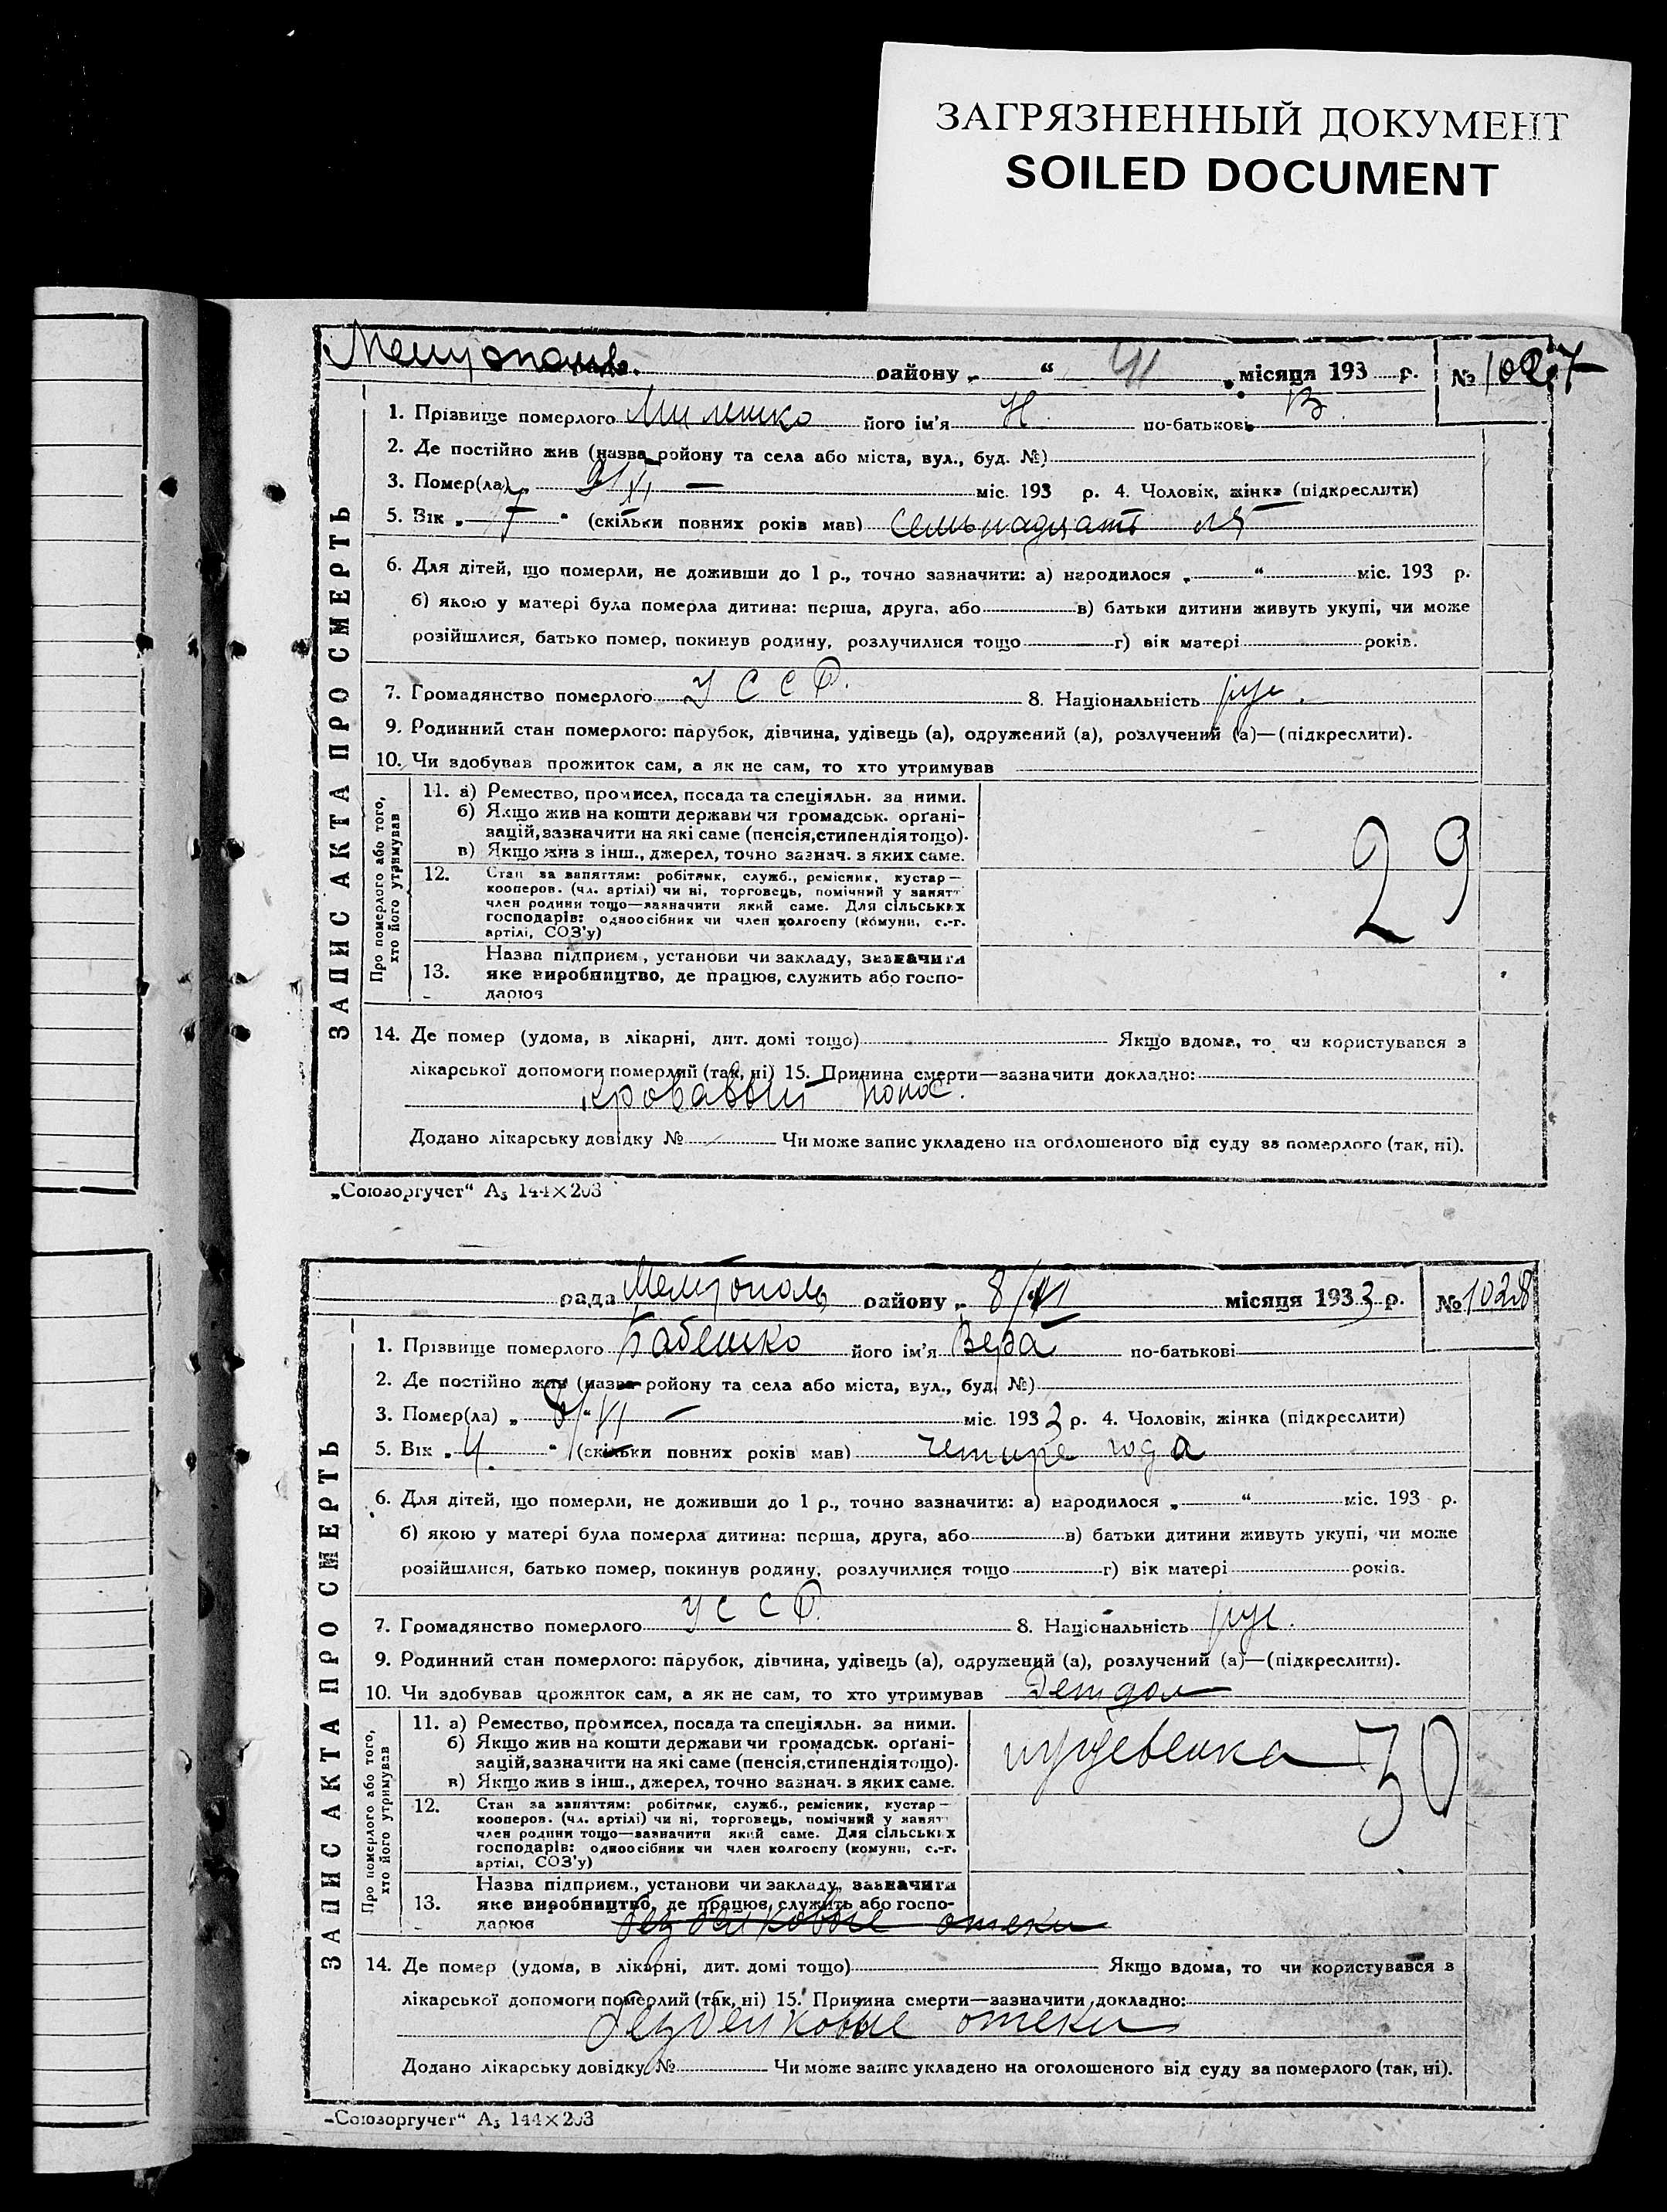 ЗАГРЯЗНЕННЫЙ ДОКУМЕНТ
SOILED DOCUMENT
району „ “ місяця 193 р. № 1027
ЗАПИС АКТА ПРО СМЕРТЬ
1. Прізвище померлого Милешко його ім'я Н. по-батькові В.
2. Де постійно жив (назва ройону та села або міста, вул., буд. №)
3. Помер(ла) міс. 193 р. 4. Чоловік, жінка (підкреслити)
5. Вік „ “ (скільки повних років мав) семьнадцать
6. Для дітей, що померли, не доживши до 1 р., точно зазначити: а) народилося „ “ міс. 193 р.
б) якою у матері була померла дитина: перша, друга, або в) батьки дитини живуть укупі, чи може
розійшлися, батько помер, покинув родину, розлучилися тощо г) вік матері років.
7. Громадянство померлого УССР. 8. Національність рус.
9. Родинний стан померлого: парубок, дівчина, удівець (а), одружений (а), розлучений (а)—(підкреслити).
10. Чи здобував прожиток сам, а як не сам, то хто утримував
Про померлого або того,
хто його утримував
11. а) Ремество, промисел, посада та спеціяльн. за ними.
б) Якщо жив на кошти держави чи громадськ. орґані-
зацій, зазначити на які саме (пенсія, стипендія тощо).
в) Якщо жив з інш., джерел, точно зазнач. з яких саме.
29
12. Стан за заняттям: робітник, служб., ремісник, кустар—
кооперов. (чл. артілі) чи ні, торговець, помічний у занятт
член родини тощо—зазначити який саме. Для сільських
господарів: одноосібник чи член колгоспу (комуни, с.-г.
артілі, СОЗ'у)
13. Назва підприєм., установи чи закладу, зазначити
яке виробництво, де працює, служить або госпо-
дарює
14. Де помер (удома, в лікарні, дит. домі тощо) Якщо вдома, то чи користувався з
лікарської допомоги померлий (так, ні) 15. Причина смерти—зазначити докладно:
кровавый понос.
Додано лікарську довідку № Чи може запис укладено на оголошеного від суду за померлого (так, ні).
„Союзоргучет“ А5 144×203
рада Мелітополь району „ 8/VI місяця 1933 р. № 1028
ЗАПИС АКТА ПРО СМЕРТЬ
1. Прізвище померлого Бабешко його ім'я Вера по-батькові
2. Де постійно жив (назва ройону та села або міста, вул., буд. №)
3. Помер(ла) „ 8/“ VI міс. 1933 р. 4. Чоловік, жінка (підкреслити)
5. Вік „ 4. “ (скільки повних років мав) четире года
6. Для дітей, що померли, не доживши до 1 р., точно зазначити: а) народилося „ “ міс. 193 р.
б) якою у матері була померла дитина: перша, друга, або в) батьки дитини живуть укупі, чи може
розійшлися, батько помер, покинув родину, розлучилися тощо г) вік матері років.
7. Громадянство померлого УССР. 8. Національність рус.
9. Родинний стан померлого: парубок, дівчина, удівець (а), одружений (а), розлучений (а)—(підкреслити).
10. Чи здобував прожиток сам, а як не сам, то хто утримував Детдом
Про померлого або того,
хто його утримував
11. а) Ремество, промисел, посада та спеціяльн. за ними.
б) Якщо жив на кошти держави чи громадськ. орґані-
зацій, зазначити на які саме (пенсія, стипендія тощо).
в) Якщо жив з інш., джерел, точно зазнач. з яких саме.
иждевенка 30
12. Стан за заняттям: робітник, служб., ремісник, кустар—
кооперов. (чл. артілі) чи ні, торговець, помічний у занят
член родини тощо—зазначити який саме. Для сільських
господарів: одноосібник чи член колгоспу (комуни, с.-г.
артілі, СОЗ'у)
13. Назва підприєм., установи чи закладу, зазначити
яке виробництво, де працює, служить або госпо-
дарює безбелковые отеки
14. Де помер (удома, в лікарні, дит. домі тощо) Якщо вдома, то чи користувався з
лікарської допомоги померлий (так, ні) 15. Причина смерти—зазначити докладно:
безбелковые отеки
Додано лікарську довідку № Чи може запис укладено на оголошеного від суду за померлого (так, ні).
„Союзоргучет“ А5 144×203